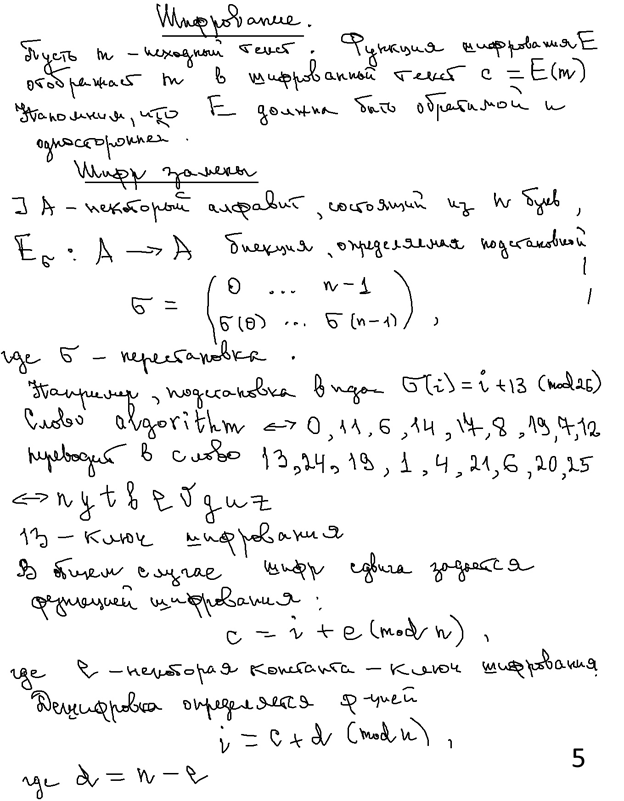 Шифрование.
Пусть m - исходный текст. Функция шифрования E
отображает m в шифрованный текст c = E(m)
Напомним, что E должна быть обратимой и
односторонней.
Шифр замены
] A - некоторый алфавит, состоящий из n букв,
E_σ : A → A биекция, определяемая подстановкой
σ = ( 0 ... n-1
σ(0) ... σ(n-1) ) ,
где σ - перестановка.
Например, подстановка вида σ(i) = i + 13 (mod 26)
Слово algorithm ↔ 0, 11, 6, 14, 17, 8, 19, 7, 12
переводит в слово 13, 24, 19, 1, 4, 21, 6, 20, 25
↔ n y t b e v g u z
13 - ключ шифрования
В общем случае шифр сдвига задается
функцией шифрования:
c = i + e (mod n) ,
где e - некоторая константа - ключ шифрования.
Дешифровка определяется ф-цией
i = c + d (mod n) ,
где d = n - e
5